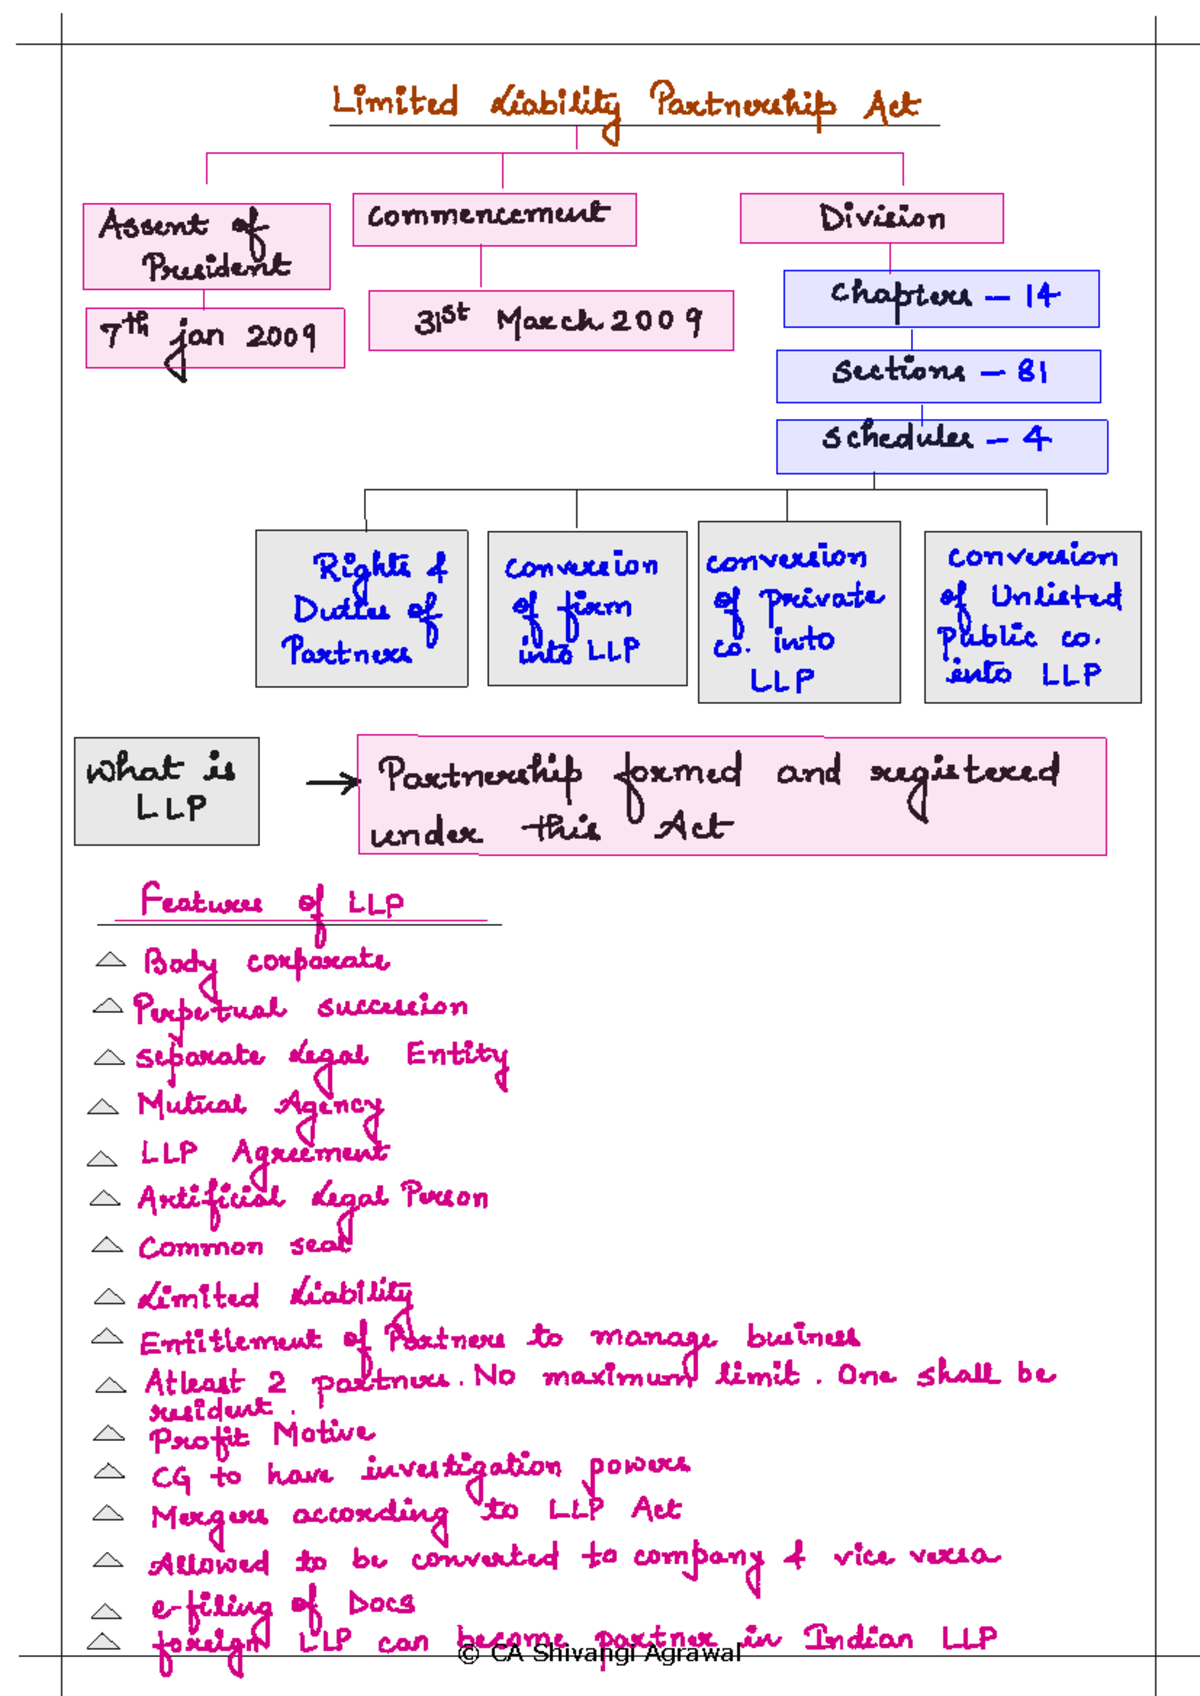 Limited Liability Partnership Act
Assent of
President
7th jan 2009
Commencement
31st March 2009
Division
Chapters - 14
Sections - 81
Schedules - 4
Rights &
Duties of
Partners
Conversion
of firm
into LLP
Conversion
of private
co. into
LLP
Conversion
of Unlisted
Public co.
into LLP
What is
LLP
→ Partnership formed and registered
under this Act
Features of LLP
Body corporate
Perpetual succession
Separate Legal Entity
Mutual Agency
LLP Agreement
Artificial Legal Person
Common seal
Limited Liability
Entitlement of Partners to manage business
Atleast 2 partners. No maximum limit. One shall be
resident.
Profit Motive
CG to have investigation powers
Mergers according to LLP Act
Allowed to be converted to company & vice versa
e-filing of Docs
foreign LLP can become partner in Indian LLP
© CA Shivangi Agrawal